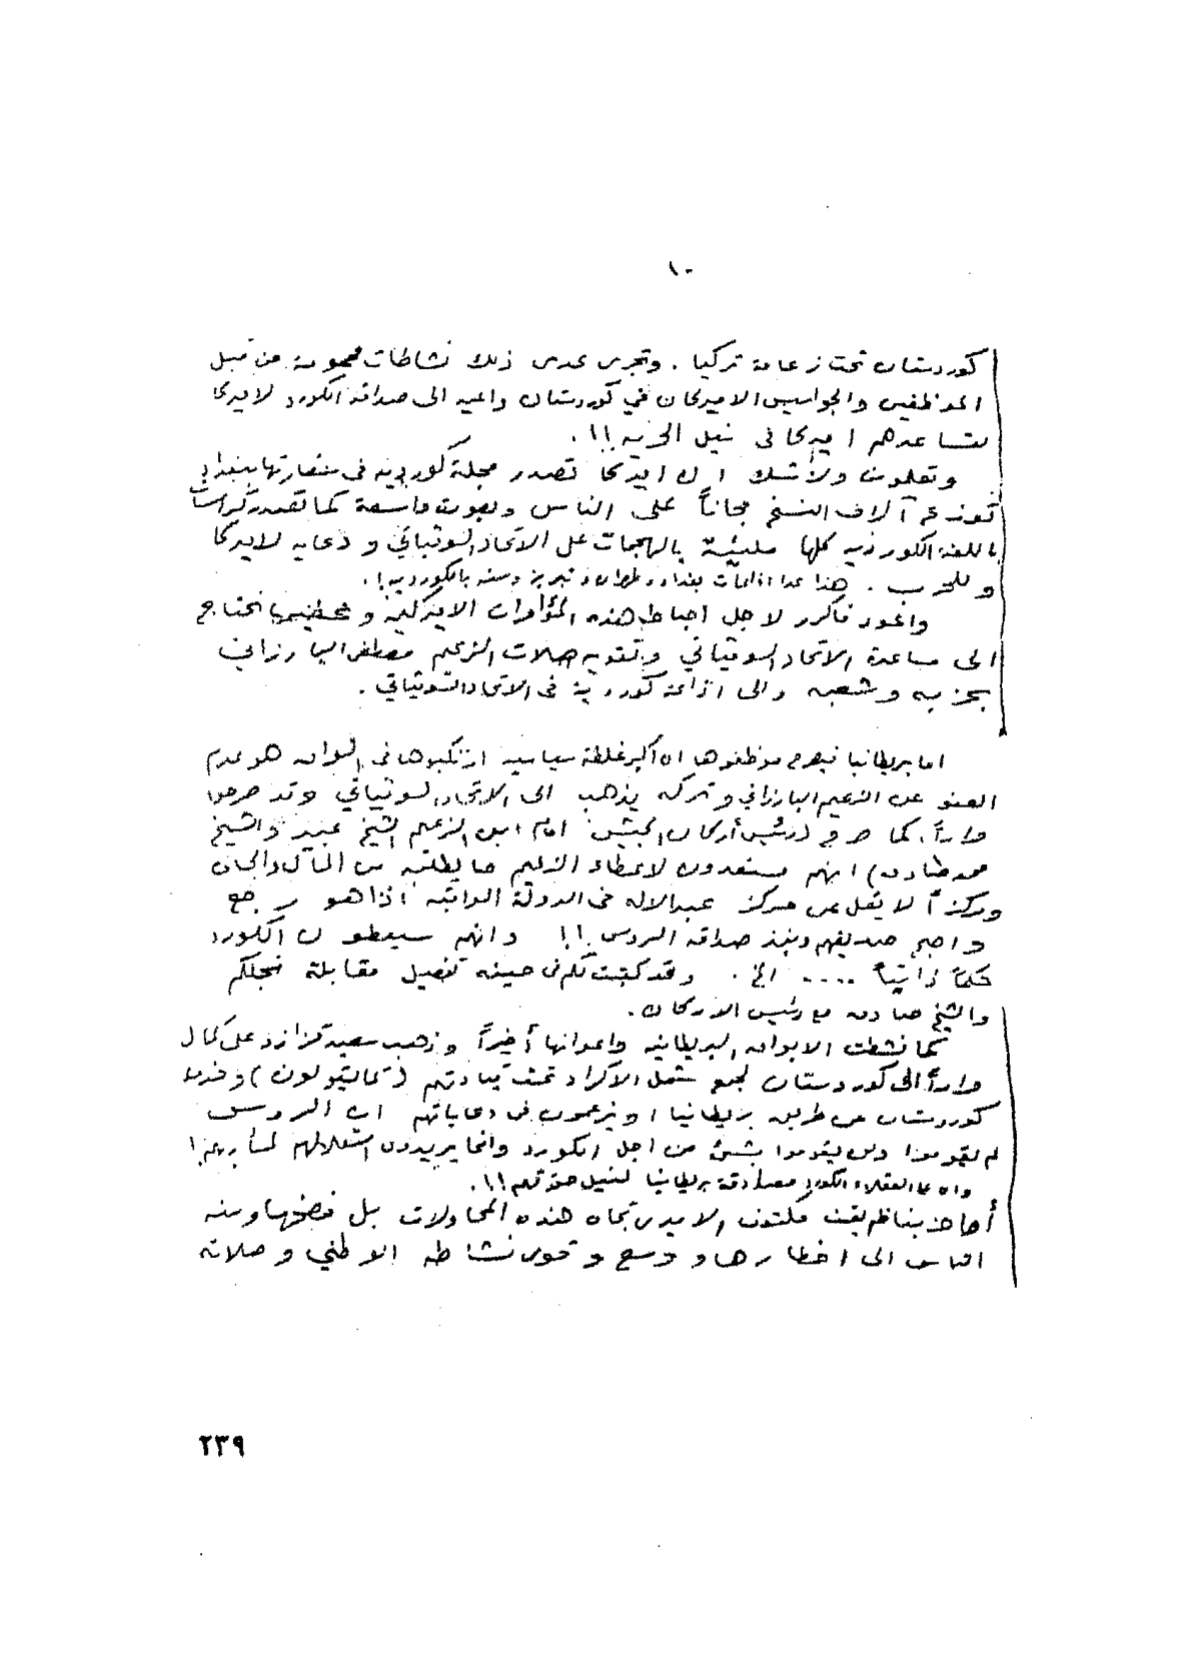 ١٠
كوردستان تحت زعامة تركيا . وتجري عدى ذلك نشاطات محمومة من قبل
الموظفين والجواسيس الاميركان في كوردستان داعيه الى صداقة الكورد لاميركا
لتساعدهم اميركا فى نيل الحريه !!.
وتعلمون ولاشك ان اميركا تصدر مجلة كورديه فى سفارتها ببغداد
توزع آلاف النسخ مجاناً على الناس وبصورة واسعة كما تصدر كراسات
باللغة الكورديه كلها مليئة بالهجمات على الاتحاد السوفياتي و دعايه لاميركا
وللحرب . هذا عدا اذاعات بغداد و طهران و تبريز وسنه بالكورديه !.
واعود فأكرر لاجل احباط هذه المؤامرات الاميركية و تحطيمها نحتاج
الى مساعدة الاتحاد السوفياتي وتقويه صلات الزعيم مصطفى البارزاني
بحزبه وشعبه والى اذاعة كوردية فى الاتحاد السوفياتي .
اما بريطانيا فيصرح موظفوها ان اكبر غلطة سياسيه ارتكبوها فى العراق هو عدم
العفو عن الزعيم البارزاني وتركه يذهب الى الاتحاد السوفياتي وقد صرحوا
مراراً . كما صرح (رئيس أركان الجيش امام ابن الزعيم الشيخ عبيد والشيخ
محمد صادق) انهم مستعدون لاعطاء الزعيم ما يطلبه من المال والجاه
ومركزاً لا يقل عن مركز عبدالاله فى الدولة العراقيه اذا هو رجع
واصبح صديقهم ونبذ صداقة الروس !! وانهم سيعطون الكورد
حكماً ذاتياً .... الخ . وقد كتبت لكم فى حينه تفصيل مقابلة نجلكم
والشيخ صادق مع رئيس الاركان .
كما نشطت الابواق البريطانيه واعوانها أخيراً وذهب سعيد قزاز وعلى كمال
مراراً الى كوردستان لجمع شمل الاكراد تحت قيادتهم و خدمة
كوردستان عن طريق بريطانيا ويزعمون فى دعاياتهم ان الروس
لم يقوموا ولن يقوموا بشئ من اجل الكورد وانما يريدون استغلالهم لمآربهم !
وان على العقلاء الكورد مصادقة بريطانيا لنيل حقوقهم !!.
أما حزبنا فلم يقف مكتوف الايدي تجاه هذه المحاولات بل فضحها ونبه
الناس الى اخطارها و وسع و قوى نشاطه الوطني وصلاته
٢٣٩